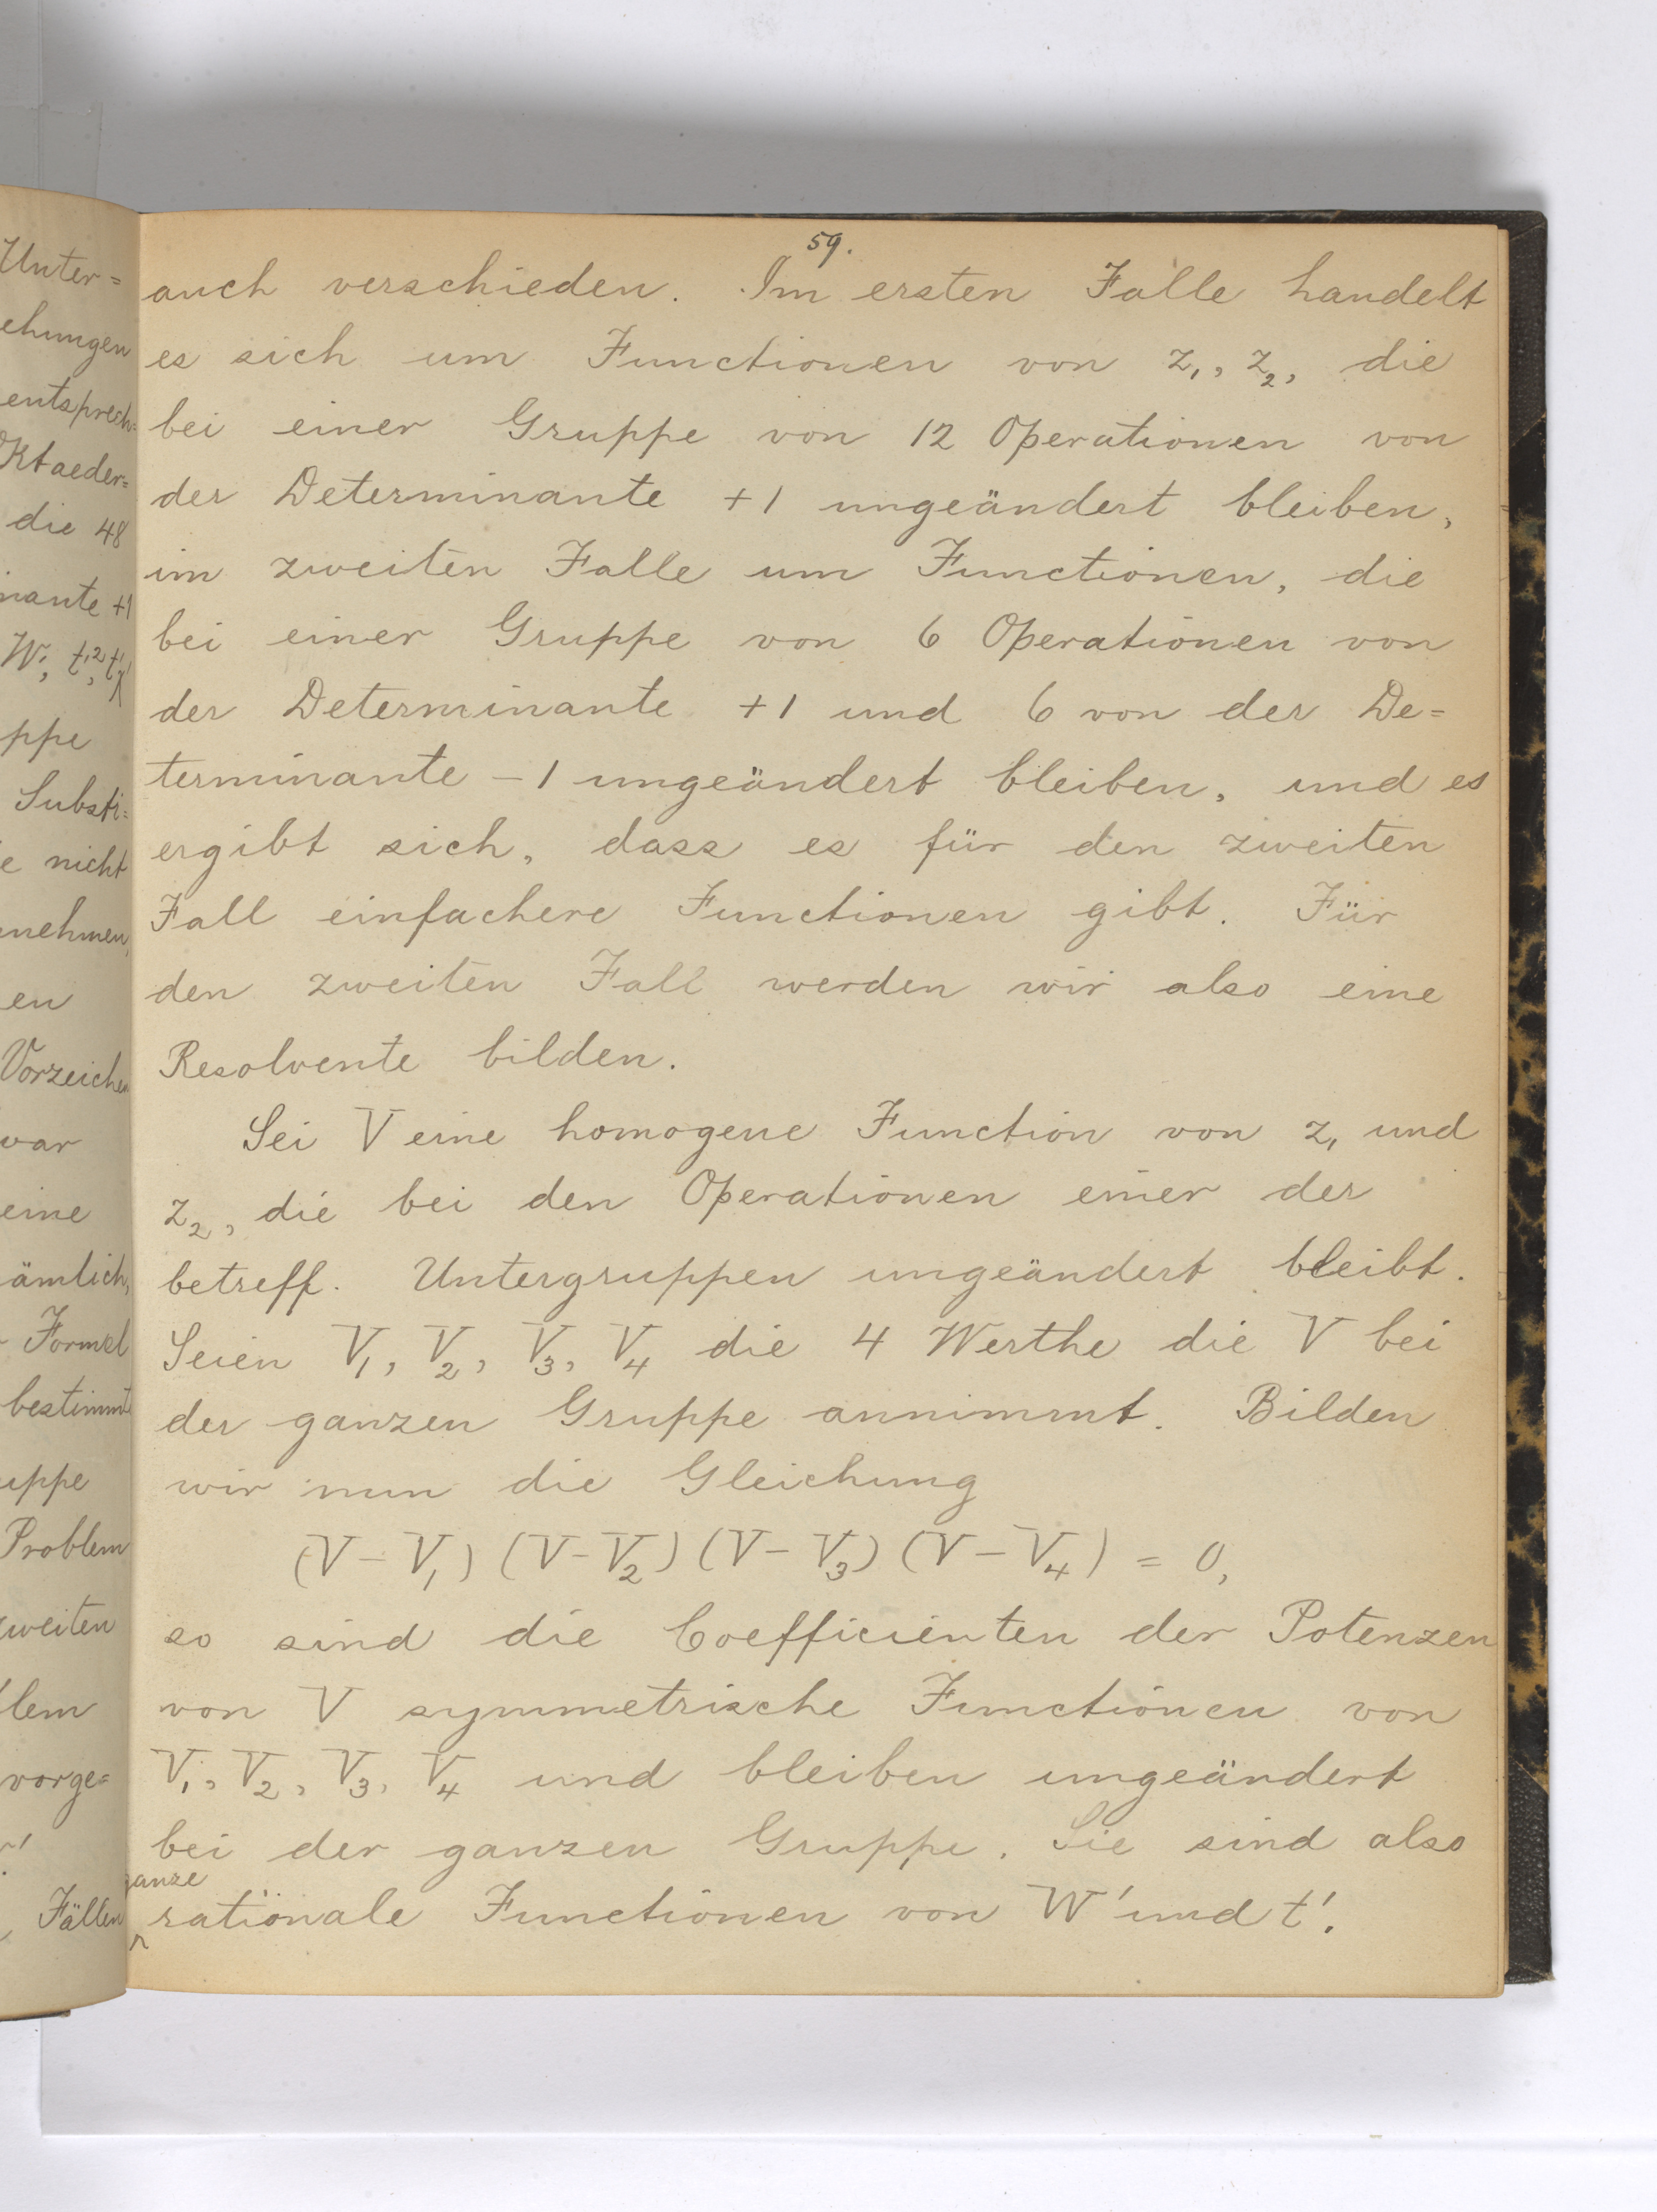 Unter=
ehungen
entsprech=
Oktaeder=
die 48
nante +1
W',
ppe
Substi=
e nicht
nehmen,
en
Vorzeichen
var
eine
ämlich,
Formel
bestimmt
uppe
Problem
zweiten
lem
vorge=
Fällen
59.
auch verschieden. Im ersten Falle handelt
es sich um Functionen von z₁, z₂, die
bei einer Gruppe von 12 Operationen von
der Determinante +1 ungeändert bleiben,
im zweiten Falle um Functionen, die
bei einer Gruppe von 6 Operationen von
der Determinante +1 und 6 von der De=
terminante -1 ungeändert bleiben, und es
ergibt sich, dass es für den zweiten
Fall einfachere Functionen gibt. Für
den zweiten Fall werden wir also eine
Resolvente bilden.
Sei V eine homogene Function von z₁ und
z₂, die bei den Operationen einer der
betreff. Untergruppen ungeändert bleibt.
Seien V₁, V₂, V₃, V₄ die 4 Werthe die V bei
der ganzen Gruppe annimmt. Bilden
wir nun die Gleichung
(V - V₁) (V - V₂) (V - V₃) (V - V₄) = 0,
so sind die Coefficienten der Potenzen
von V symmetrische Functionen von
V₁, V₂, V₃, V₄ und bleiben ungeändert
bei der ganzen Gruppe. Sie sind also
ganze
rationale Functionen von W' und t'.